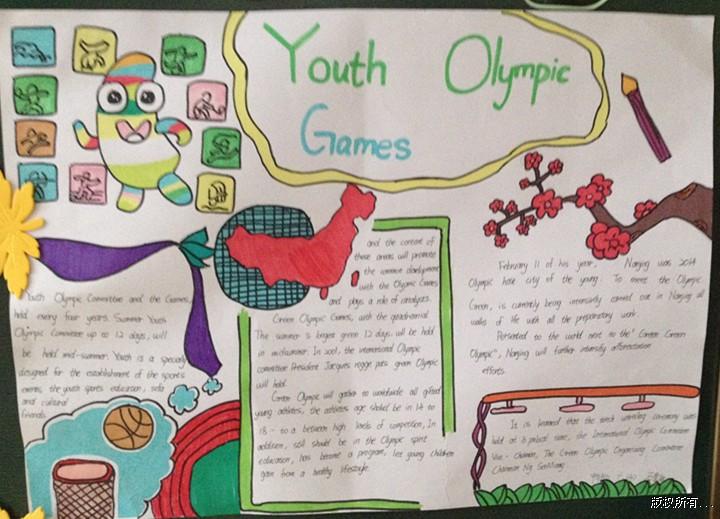 Youth Olympic
Games
and the content of
these areas will promote
the common development
with the Olympic Games
and plays a role of catalysts.
Green Olympic Games, with the quadrennial
The summer is largest green 12 days. will be held
in midsummer. In 2001, the international Olympic
committee President Jacques rogge puts green Olympic
will hold.
Green Olympic will gather to worldwide all gifted
young athletes, the athletes age should be in 14 to
18 - to a between high levels of competition, In
addition, still should be in the Olympic spirit
education, has become a program, let young children
gain from a healthy lifestyle.
Youth Olympic Committee and the Games,
held every four years. Summer Youth
Olympic Committee up to 12 days, will
be held mid-summer. Youth is a specially
designed for the establishment of the sports
events, the youth sports education,
and cultural
friends.
February 11 of his year, Nanjing was 2014
Olympic host city of the young. To meet the Olympic
Green, is currently being intensely carried out in Nanjing all
walks of life with all the preparatory work.
Presented to the world next to the "Green Green
Olympic", Nanjing will further intensify afforestation
efforts.
It is learned that the award winning ceremony was
held at a primal name, the International Olympic Committee
Vice - Chairman, The Green Olympic Organizing Committee
Chairman Ng
版权所有...